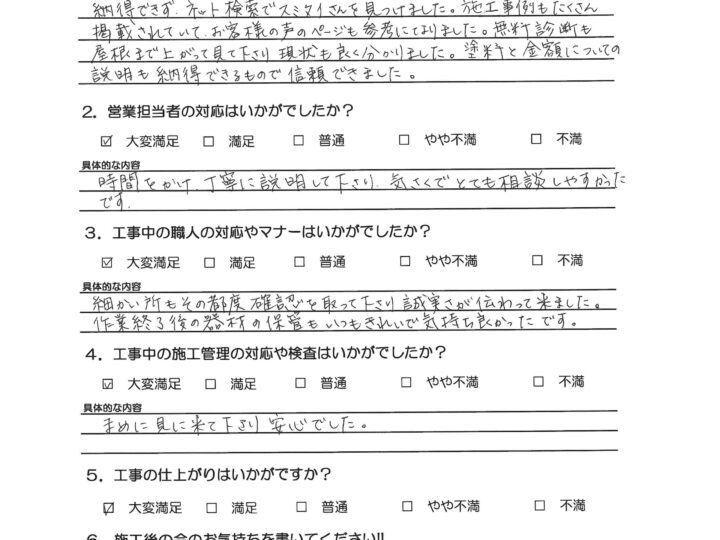 納得できず、ネット検索でスミタイさんを見つけました。施工事例もたくさん
掲載されていて、お客様の声のページも参考にしてなりました。無料診断も
屋根まで上がって見て下さり 現状も良く分かりました。塗料と金額についての
説明も納得できるもので信頼できました。
2．営業担当者の対応はいかがでしたか？
☑ 大変満足 □ 満足 □ 普通 □ やや不満 □ 不満
具体的な内容
時間をかけ、丁寧に説明して下さり、気さくでとても相談しやすかった
です。
3．工事中の職人の対応やマナーはいかがでしたか？
☑ 大変満足 □ 満足 □ 普通 □ やや不満 □ 不満
具体的な内容
細かい所もその都度確認を取って下さり誠実さが伝わって来ました。
作業終了後の器材の保管もいつもきれいで気持ち良かったです。
4．工事中の施工管理の対応や検査はいかがでしたか？
☑ 大変満足 □ 満足 □ 普通 □ やや不満 □ 不満
具体的な内容
まめに見に来て下さり 安心でした。
5．工事の仕上がりはいかがですか？
☑ 大変満足 □ 満足 □ 普通 □ やや不満 □ 不満
6．施工後の今のお気持ちを書いてください!!